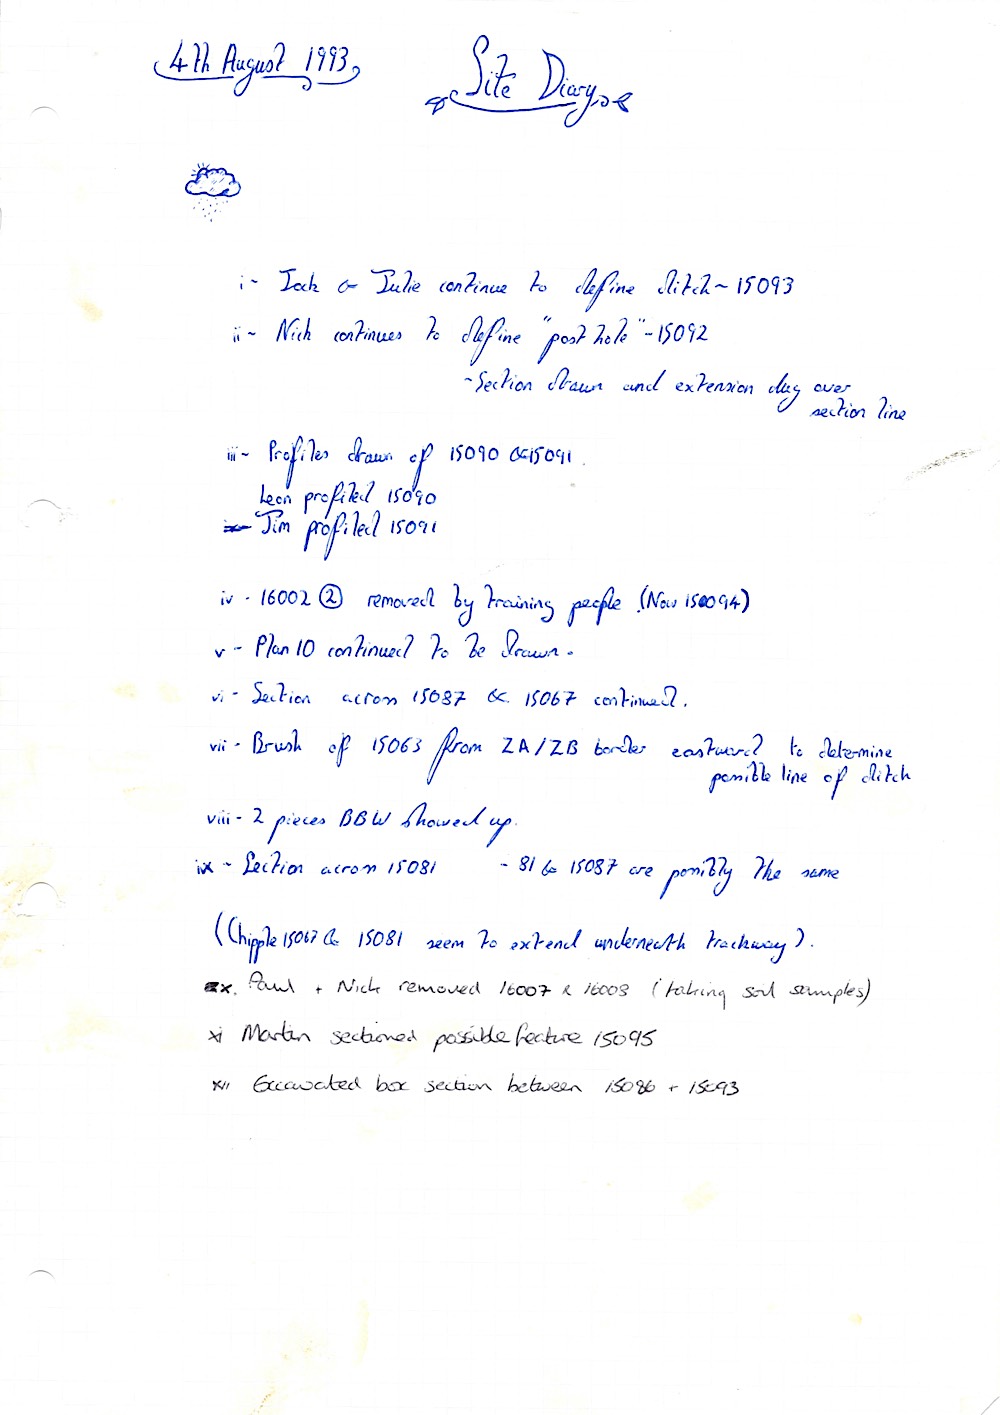 4th August 1993
Site Diary
i - Jack & Julie continue to define ditch ~ 15093
ii ~ Nick continues to define "post hole" - 15092
- Section drawn and extension dug over
section line
iii ~ Profiles drawn of 15090 & 15091.
Leon profiled 15090
Jim profiled 15091
iv - 16002 ② removed by training people (Now 15094)
v - Plan 10 continued to be drawn.
vi - Section across 15087 & 15067 continued.
vii - Brush of 15063 from ZA/ZB border eastward to determine
possible line of ditch
viii - 2 pieces BBW showed up.
ix - Section across 15081 - 81 & 15087 are possibly the same
(Chipple 15067 & 15081 seem to extend underneath trackway).
x. Paul + Nick removed 16007 & 16008 (taking soil samples)
xi Martin sectioned possible feature 15095
xii Excavated box section between 15086 + 15093